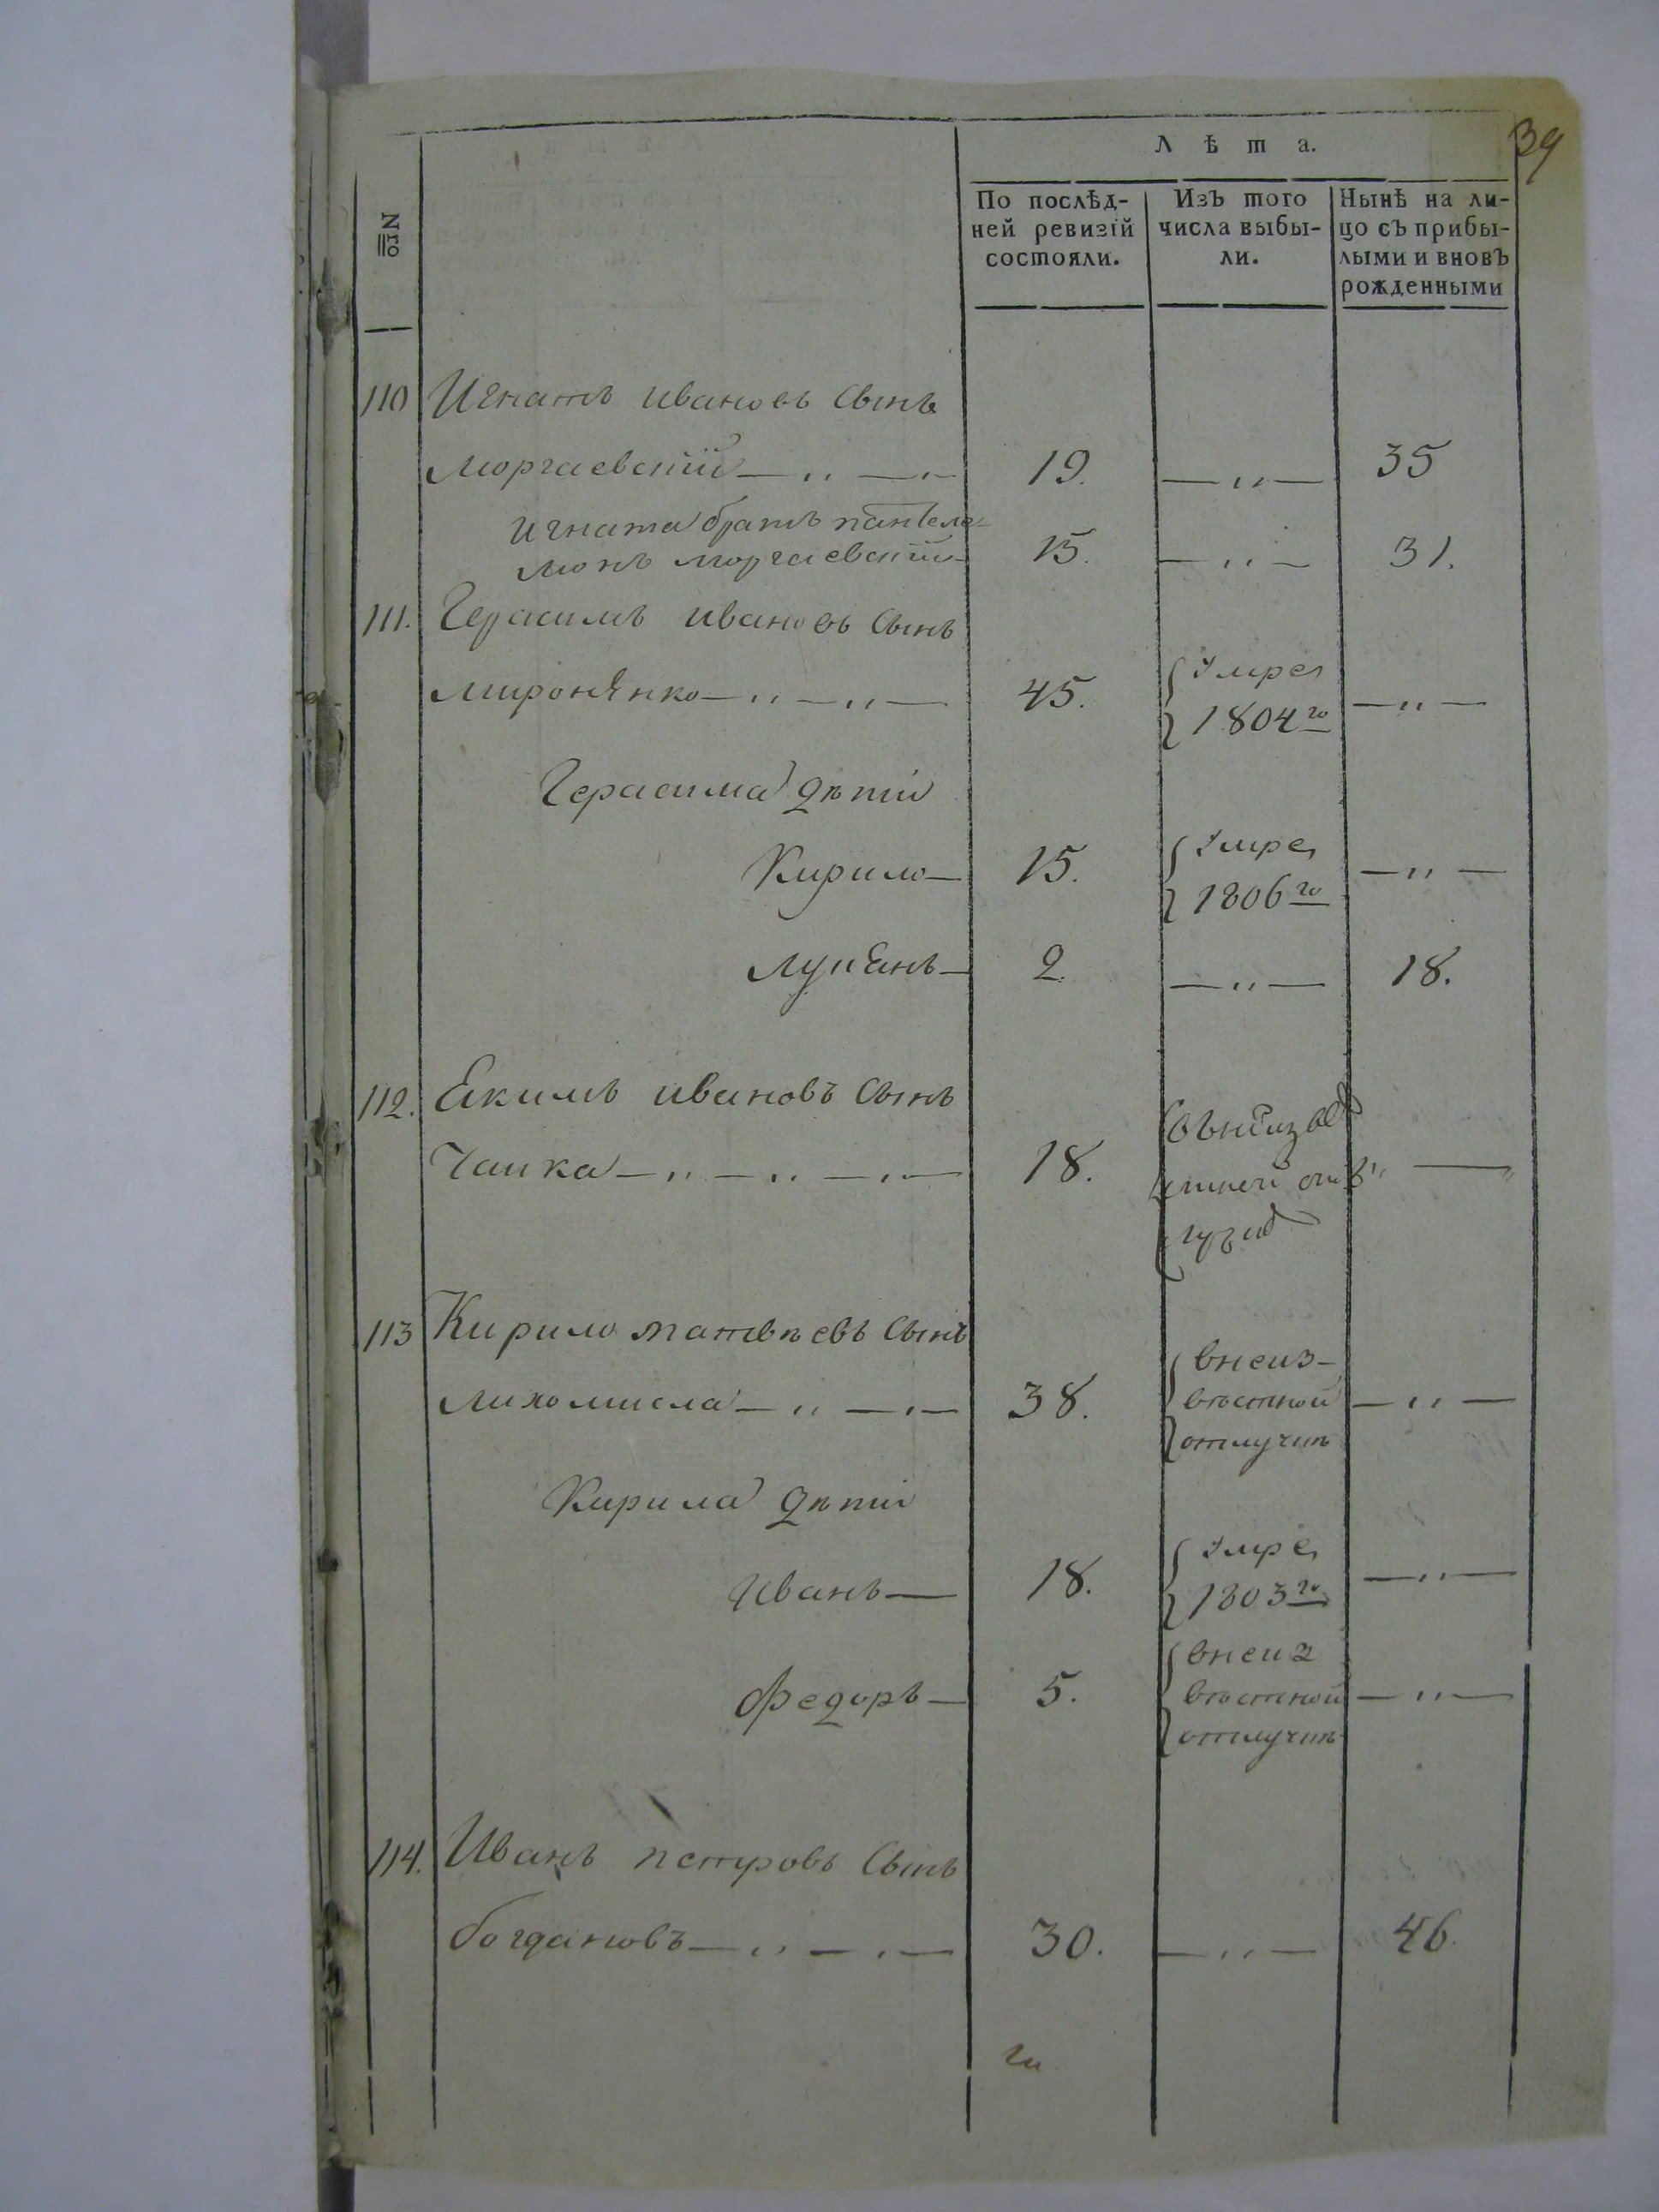 39
Лѣта.
№го
По послѣд-
ней ревизїй
состояли.
Изъ того
числа выбы-
ли.
Нынѣ на ли-
цо съ прибы-
лыми и вновь
рожденными
110 Игнатъ ивановъ сынъ
моргаевскїй — „ — „ 19. — „ — 35
игната братъ пантеле
монъ моргаевскїй 15. — „ — 31.
111. Герасимъ ивановъ сынъ
миронѣнко — „ — „ — 45. умре 1804го — „ —
Герасима дѣти
Кирило — 15. умре 1806го — „ —
лукянъ — 2. — „ — 18.
112. Екимъ ивановъ сынъ
Чайка — „ — „ — „ — 18. —
113 Кирило матвѣевъ сынъ
лихомисла — „ — „ — 38. внеиз-
вѣстной — „ —
отлучкѣ
Кирила дѣти
иванъ — 18. умре 1803го — „ —
федоръ — 5. внеиз
вѣстной — „ —
отлучкѣ
114. Иванъ петровъ сынъ
богдановъ — „ — „ — 30. — „ — 46.